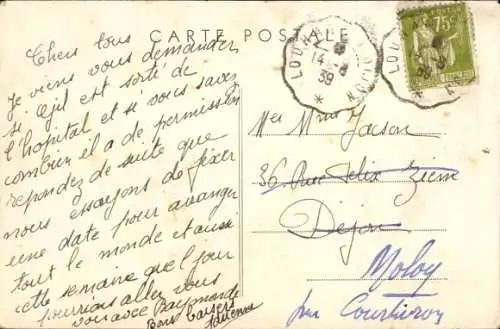 CARTE POSTALE
Chers tous
Je viens vous demander
si Cyil est sorti de
l'hopital et si vous savez
combien il a de permission
repondez de suite que
nous essayons de fixer
une date pour avanger
tout le monde et aussi
cette semaine quel jour
pourrions aller vous
voir avec Raymonde
Bons baisers
LOUHANS
DIJON
14 - 8
39
75c
Mer Mme Jacson
36 Rue Felix Ziem
Dijon
Moloy
par Courtivron